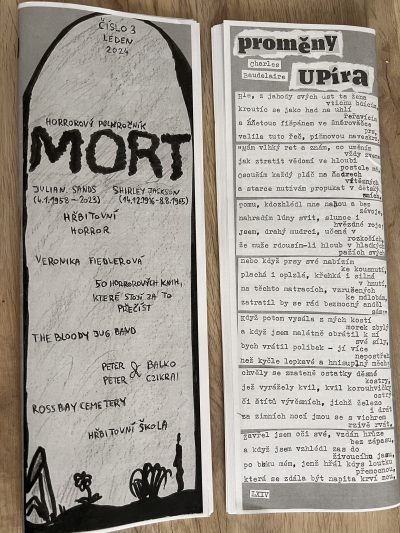 ČÍSLO 3
LEDEN
2024
HORROROVÝ POLOROČNÍK
MORT
JULIAN SANDS SHIRLEY JACKSON
(4.1.1958-2023) (14.12.1916-8.8.1965)
HŘBITOVNÍ
HORROR
VERONIKA FIEDLEROVÁ
50 HORROROVÝCH KNIH,
KTERÉ STOJÍ ZA TO
PŘEČÍST
THE BLOODY JUG BAND
PETER & BALKO
PETER CZIKRAI
ROSS BAY CEMETERY
HŘBITOVNÍ ŠKOLA
proměny
Charles
Baudelaire
UPÍRA
Hle, z jahody svých úst ta žena
vtichu bdícím,
kroutíc se jako had na uhlí
řeřavícím
a hňětouc fišpénem ve šněrovačce
prs,
valila tuto řeč, pižmovou naveskrz.
"Mám vlhký ret a znám, co uměním
vždy zvem,
jak ztratit vědění ve hloubi
postele
osouším každý pláč na ňadrech
vítězných
a starce nutívám propukat v dětský
smích.
tomu, kdo zhlédl mne nahou a bez
závoje,
nahradím lůny svit, slunce i
hvězdné roje;
jsem, drahý mudrci, učená v
rozkoších,
že muže rdousím-li hloub v hladkých
pažích svých
nebo když prsy své nabízím
ke kousnutí,
plachá i oplzlá, křehká i silná
v hnutí,
na těchto matracích, vzrušených
ke mdlobám,
zatratil by se rád bezmocný anděl
sám!
když potom vysála z mých kostí
morek zbylý
a když jsem malátně obrátil k ní
své síly,
bych vrátil polibek - jí více
nepostřeh
než kyčle lepkavé a hnisuplný měch
chvěly se zmateně ostatky děsné
kostry,
jež vyrážely kvil, kvil korouhvičky
ostrý
či štítů vývěsních, jichž železo
i drát
za zimních nocí jmou se s vichrem
rzivě rvát.
zavřel jsem oči své, vzdán hrůze
bez zápasu,
a když jsem vzhlédl zas do
živoucího jasu,
po boku mém, jenž hřál kdys loutku
přemocnou,
která se zdála být napita krví mou,
LXIV